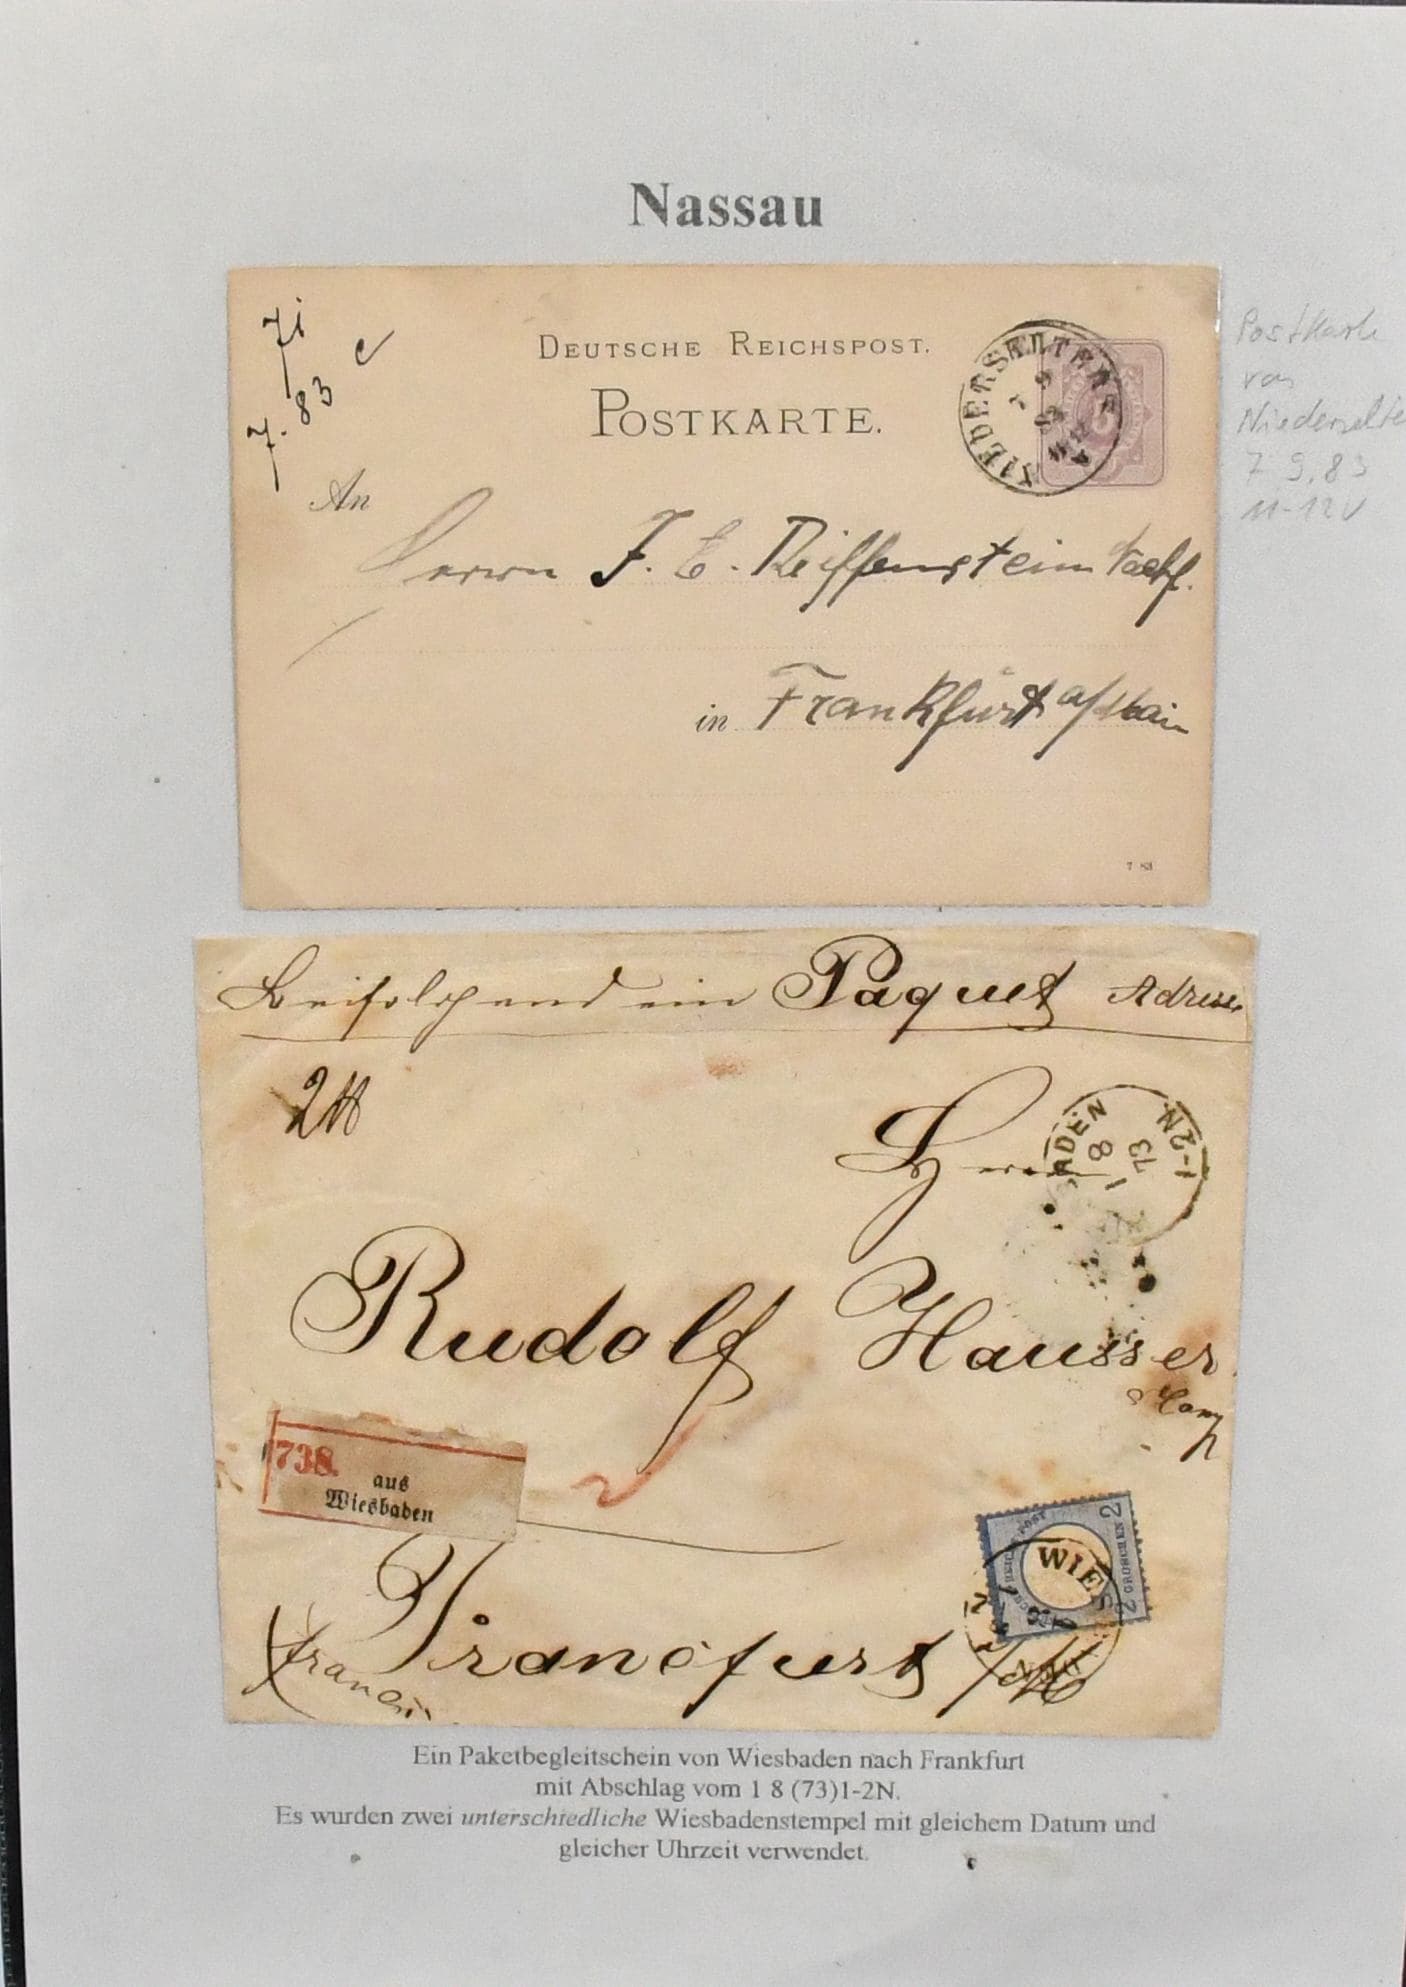 Nassau
7i
7. 83 c
DEUTSCHE REICHSPOST.
POSTKARTE.
NIEDERSELTERS
7 9
83
An
Herrn J. C. Reiffenstein Nachf.
in Frankfurt a/Main
7 83
Postkarte
von
Niederselte
7 9. 83
11-12V
Beifolgend ein Paquet Adresse
Herrn
ADEN
1 8
73
1-2N.
Rudolf Hausser
Comp
738.
aus
Wiesbaden
2 GROSCHEN 2
WIES
Francfurt /M
franco
Ein Paketbegleitschein von Wiesbaden nach Frankfurt
mit Abschlag vom 1 8 (73)1-2N.
Es wurden zwei unterschiedliche Wiesbadenstempel mit gleichem Datum und
gleicher Uhrzeit verwendet.